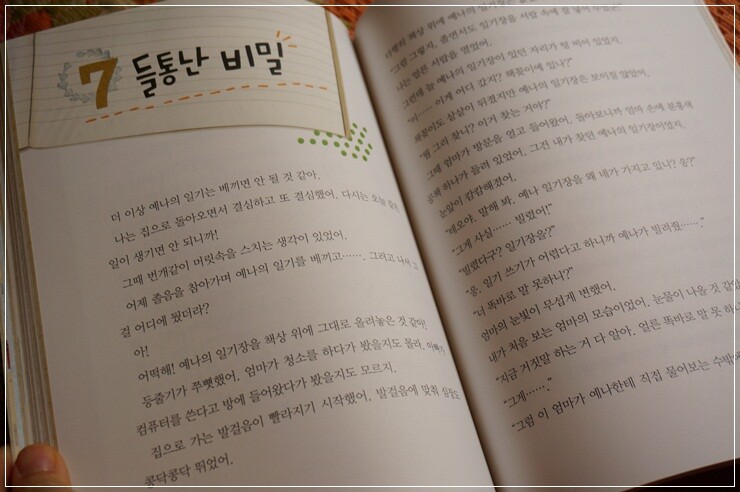 7 들통난 비밀
더 이상 예나의 일기는 베끼면 안 될 것 같아.
나는 집으로 돌아오면서 결심하고 또 결심했어. 다시는 오늘 같은
일이 생기면 안 되니까!
그때 번개같이 머릿속을 스치는 생각이 있었어.
어제 졸음을 참아가며 예나의 일기를 베끼고……. 그리고 나서 그
걸 어디에 뒀더라?
아!
어떡해! 예나의 일기장을 책상 위에 그대로 올려놓은 것 같아!
등줄기가 쭈뼛했어. 엄마가 청소를 하다가 봤을지도 몰라. 아빠가
컴퓨터를 쓴다고 방에 들어왔다가 봤을지도 모르지.
집으로 가는 발걸음이 빨라지기 시작했어. 발걸음에 맞춰 심장도
콩닥콩닥 뛰었어.
책상 위에 예나의 일기장은
"그럼 그렇지, 졸면서도 일기장을 서랍 속에 잘 넣어
나는 얼른 서랍을 열었어.
그런데 늘 예나의 일기장이 있던 자리가 텅 비어 있었지.
"어…… 이게 어디 갔지? 책꽂이에 있나?"
책꽂이도 샅샅이 뒤졌지만 예나의 일기장은 보이질 않았어.
"뭘 그리 찾니? 이거 찾는 거야?"
그때 엄마가 방문을 열고 들어왔어. 돌아보니까 엄마 손에 분홍색
공책 하나가 들려 있었어. 그건 내가 찾던 예나의 일기장이었지.
눈앞이 캄캄해졌어.
"태오야. 말해 봐. 예나 일기장을 왜 네가 가지고 있니? 응?"
"그게 사실…… 빌렸어!"
"빌렸다구? 일기장을?"
"응. 일기 쓰기가 어렵다고 하니까 예나가 빌려줬……."
"너 똑바로 말 못하니?"
엄마의 눈빛이 무섭게 변했어.
내가 처음 보는 엄마의 모습이었어. 눈물이 나올 것 같았
"지금 거짓말 하는 거 다 알아. 얼른 똑바로 말 못 하
"그게……."
"그럼 이 엄마가 예나한테 직접 물어보는 수밖에